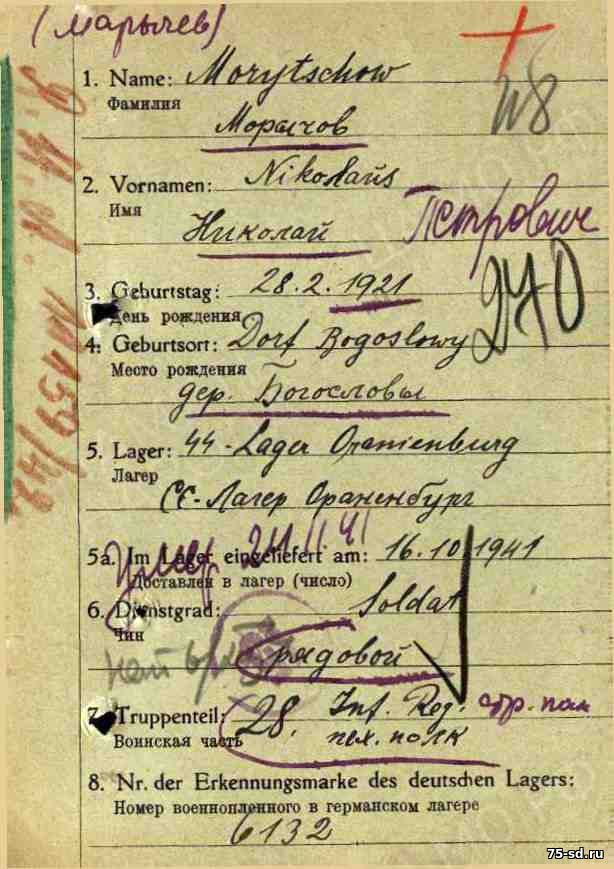 (Марычев)
1. Name: Morytschow
Фамилия
Морычов
2. Vornamen: Nikolaus
Имя
Николай Петрович
3. Geburtstag: 28.2.1921
День рождения
270
4. Geburtsort: Dorf Bogoslowy
Место рождения
дер. Богословы
5. Lager: SS-Lager Oranienburg
Лагер
СС-Лагер Ораненбург
5a. Im Lager eingeliefert am: 16.10.1941
Доставлен в лагер (число)
6. Dienstgrad: Soldat
Чин
рядовой
7. Truppenteil: 28. Inf. Reg. стр. полк
Воинская часть пех. полк
8. Nr. der Erkennungsmarke des deutschen Lagers:
Номер военнопленного в германском лагере
6132
75-sd.ru